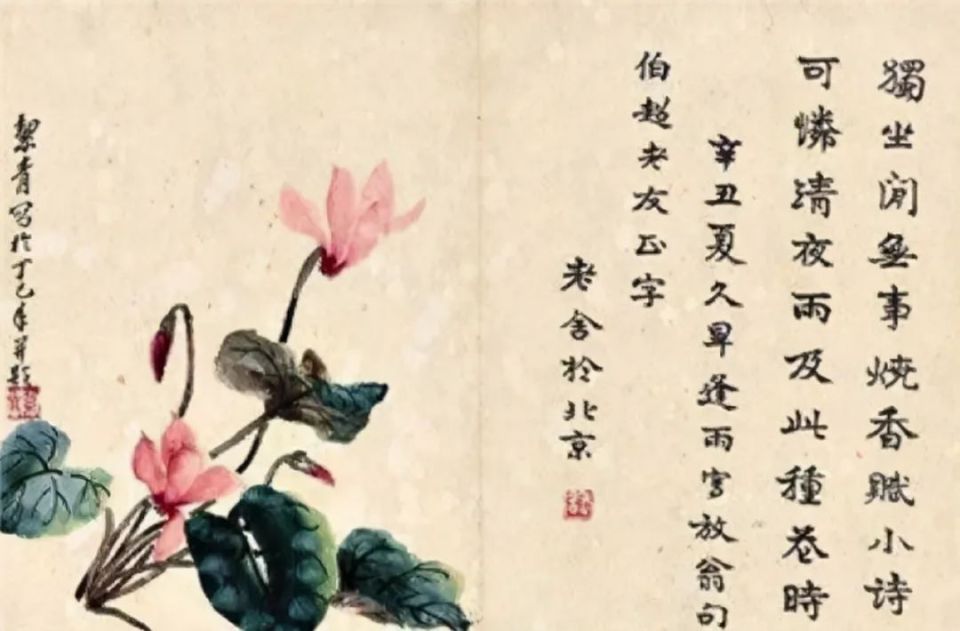 獨坐閒無事燒香賦小詩
可憐清夜雨及此種花時
辛丑夏久旱逢雨寫放翁句
伯超老友正字
老舍於北京
絜青写於丁巳年并题